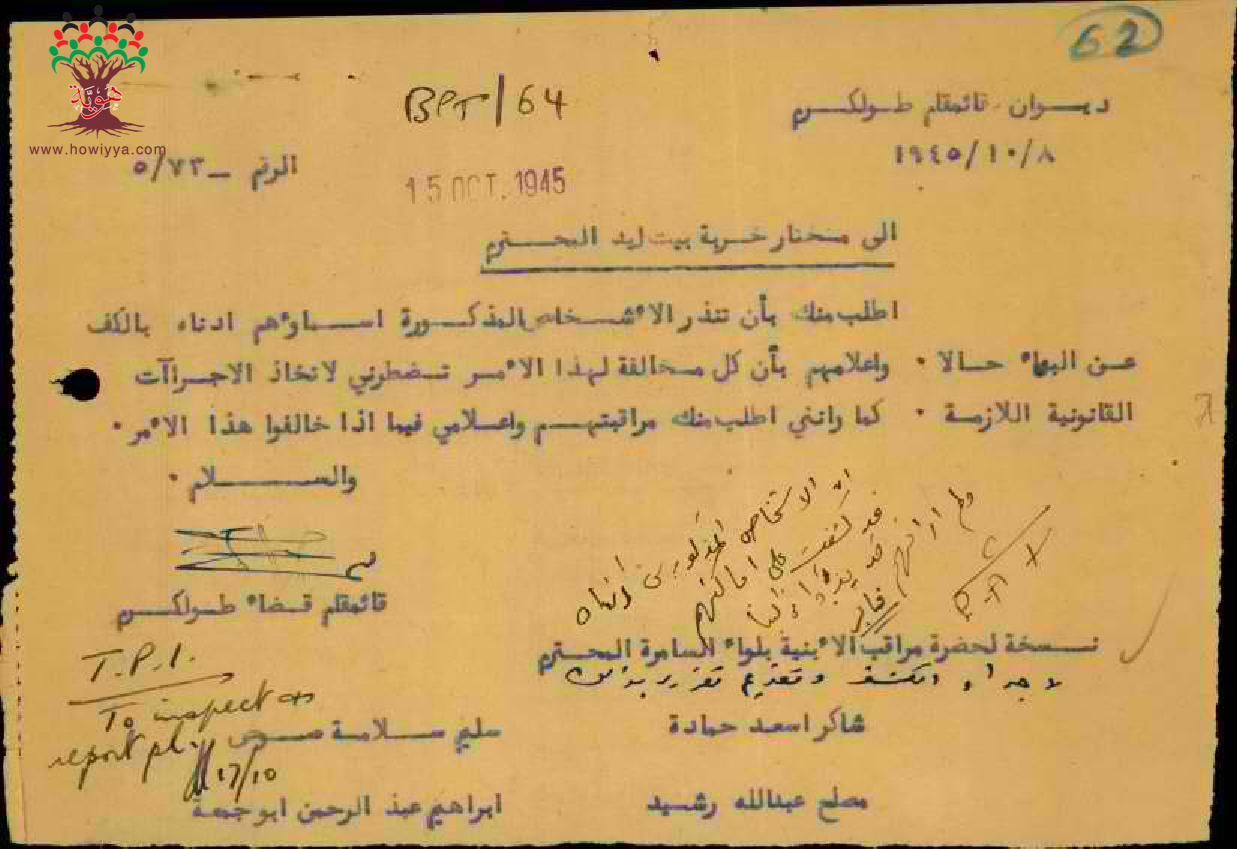 62
هوية
www.howiyya.com
BPT/64
ديوان قائمقام طولكرم
١٩٤٥/١٠/٨
الرقم — ٥/٧٣
15 OCT. 1945
الى مختار خربة بيت ليد المحترم
اطلب منك بأن تنذر الاشخاص المذكورة اسماؤهم ادناه بالكف
عن البناء حالا ٠ واعلامهم بأن كل مخالفة لهذا الامر تضطرني لاتخاذ الاجراآت
القانونية اللازمة ٠ كما وانني اطلب منك مراقبتهم واعلامي فيما اذا خالفوا هذا الامر ٠
والسلام ٠
قائمقام قضاء طولكرم
ان الاشخاص المذكورين ادناه
قد كشفت على اماكنهم
نسخة لحضرة مراقب الابنية بلواء السامرة المحترم
لاجراء الكشف وتقديم تقرير بذلك
T.P.I.
To inspect &
report pl.
17/10
شاكر اسعد حمادة
سليم سلامة
مصلح عبدالله رشيد
ابراهيم عبد الرحمن ابو جمعة